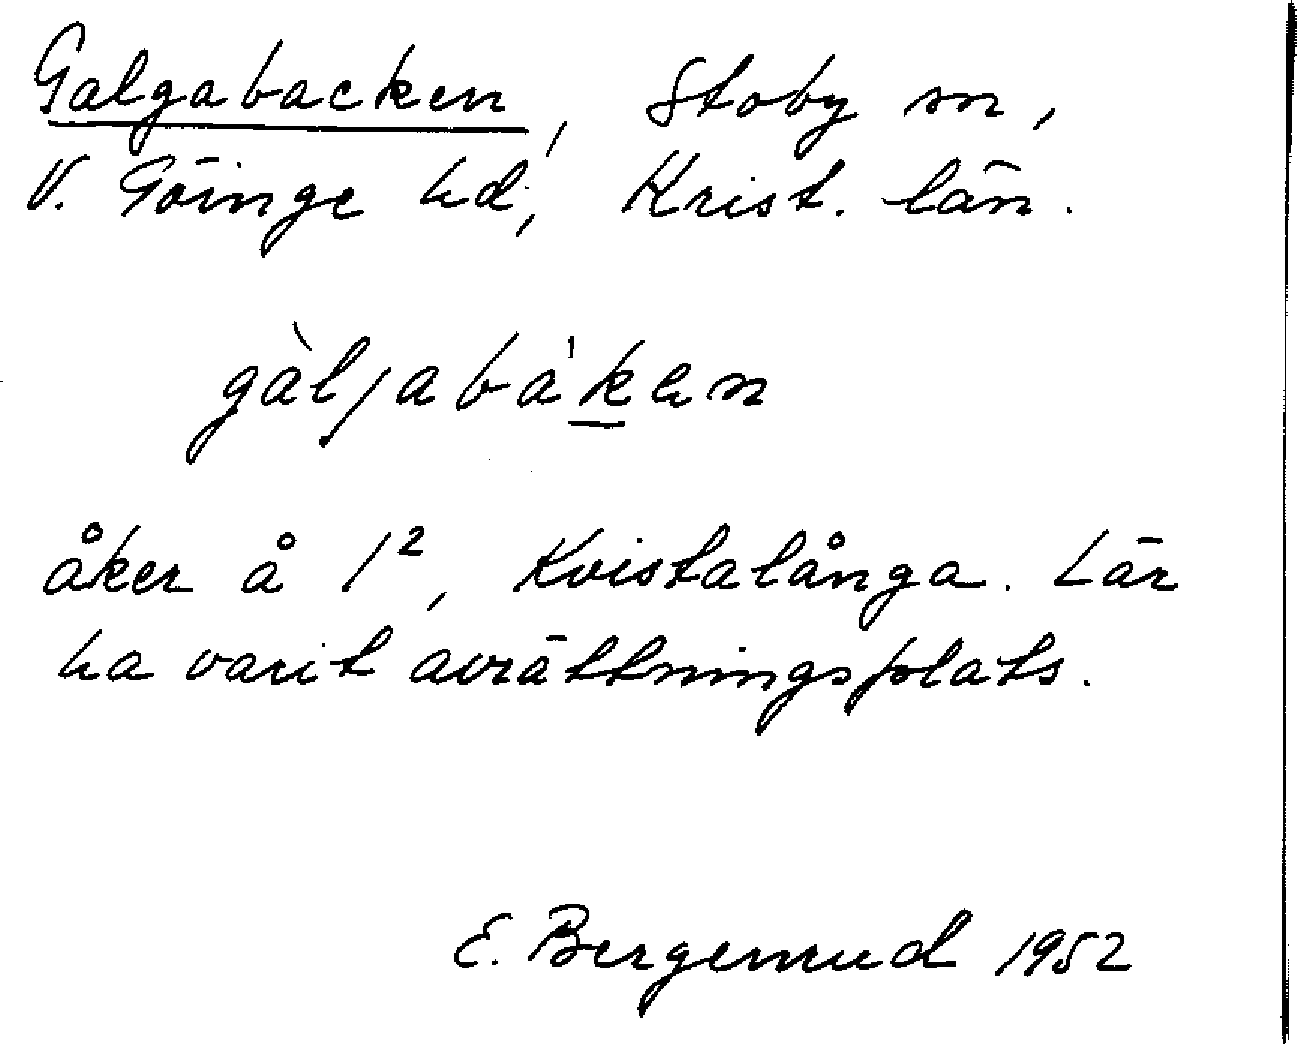 Galgabacken, Stoby sn,
V. Göinge hd, Krist. län.
gàljabá̱ken
åker å 1², Kvistalånga. Lär
ha varit avrättningsplats.
E. Bergenrud 1952